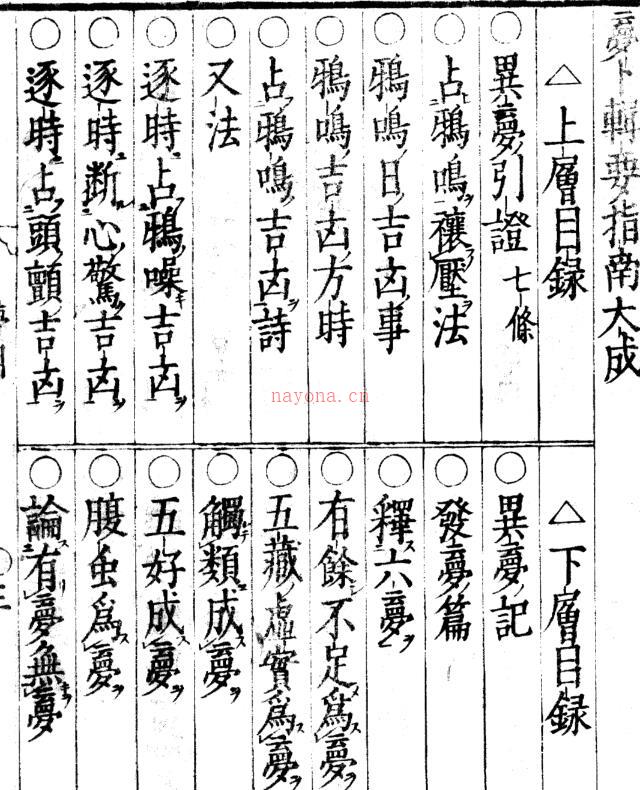 夢卜輯要指南大成
△上層目録
○異夢引證 七條
○占鴉鳴禳壓法
○鴉鳴日吉凶事
○鴉鳴吉凶方時
○占鴉鳴吉凶詩
○又法
○逐時占鴉噪吉凶
○逐時断心驚吉凶
○逐時占頭顫吉凶
△下層目録
○異夢記
○發夢篇
○釋六夢
○有餘不足為夢
○五藏虚實為夢
○觸類成夢
○五好成夢
○腹虫為夢
○論有夢無夢
nayona.cn